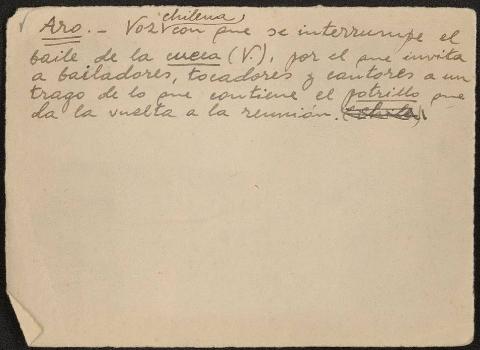 chilena,
Aro. — Voz con que se interrumpe el
baile de la cueca (V.), por el que invita
a bailadores, tocadores y cantores a un
trago de lo que contiene el potrillo que
da la vuelta a la reunión. (Chile)